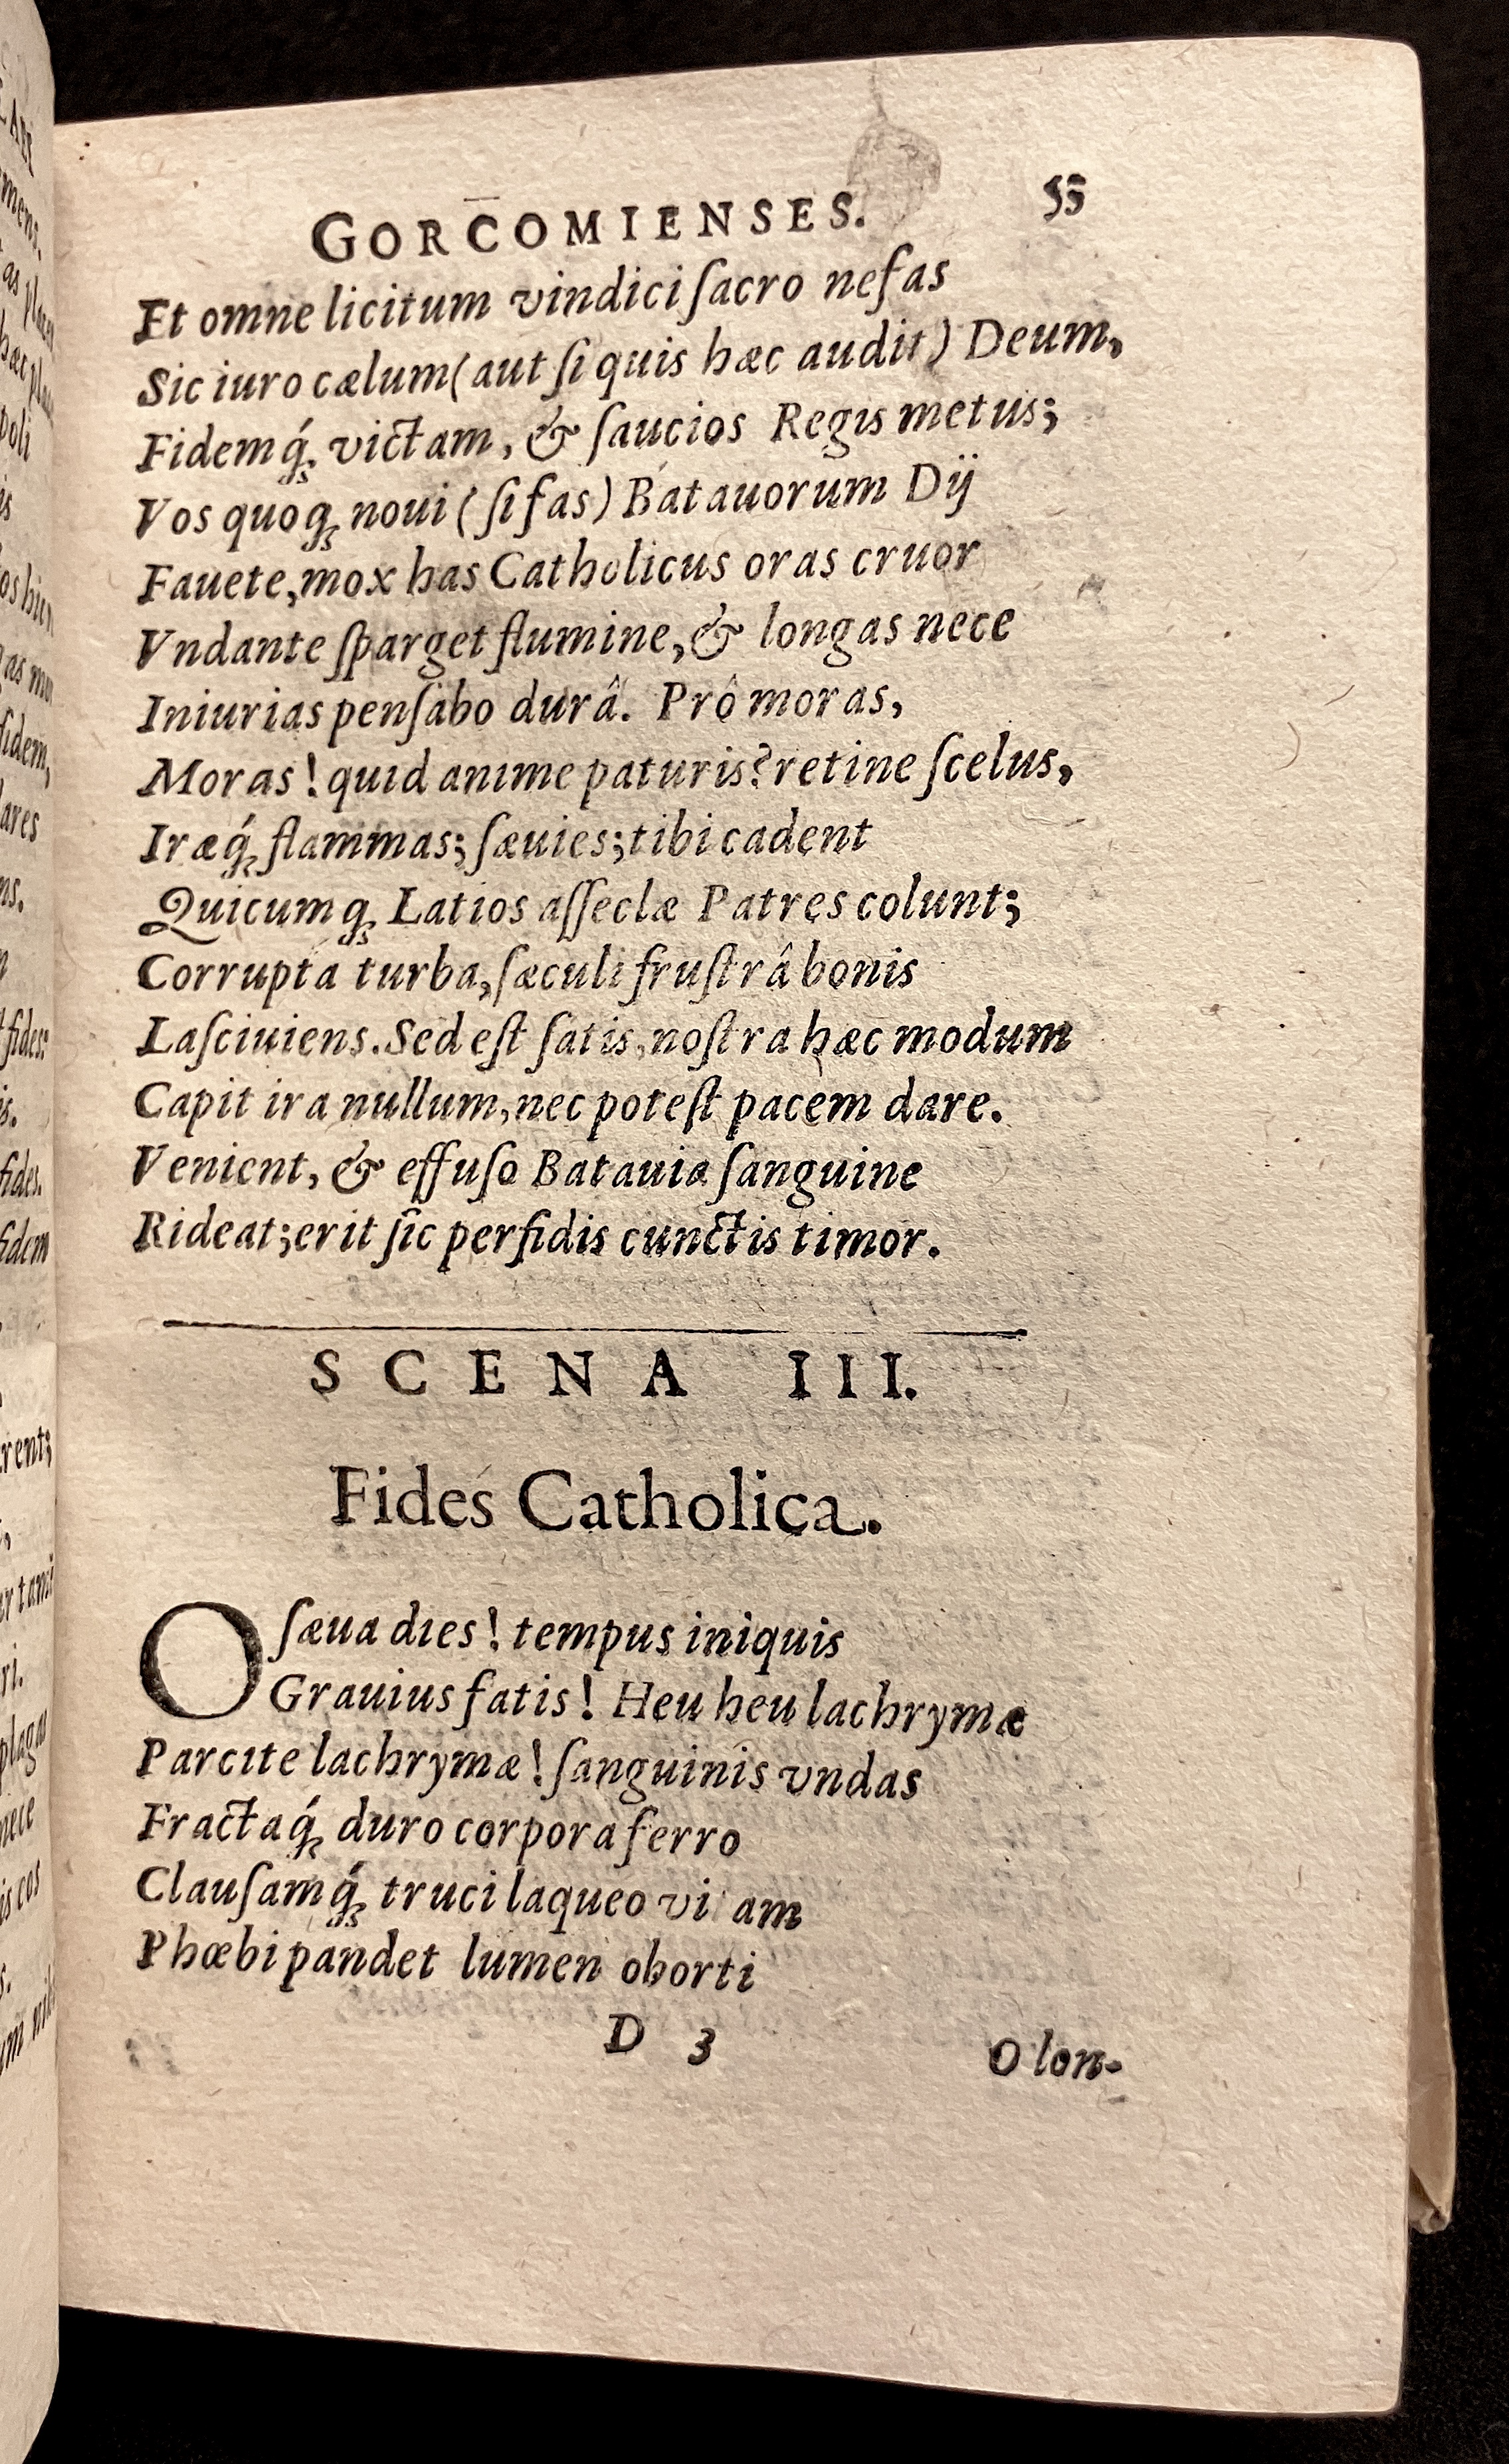 GORCOMIENSES. 55
Et omne licitum vindici ſacro nefas
Sic iuro cælum (aut ſi quis hæc audit) Deum,
Fidemq́ꝫ victam, & ſaucios Regis metus;
Vos quoqꝫ noui (ſi fas) Batauorum Dij
Fauete, mox has Catholicus oras cruor
Vndante ſparget flumine, & longas nece
Iniurias penſabo durâ. Prô moras,
Moras! quid anime paturis? retine ſcelus,
Iræq́ꝫ flammas; ſæuies; tibi cadent
Quicumqꝫ Latios aſſeclæ Patres colunt;
Corrupta turba, ſæculi fruſtrâ bonis
Laſciuiens. Sed eſt ſatis, noſtra hæc modum
Capit ira nullum, nec poteſt pacem dare.
Venient, & effuſo Batauia ſanguine
Rideat; erit ſic perfidis cunctis timor.
SCENA III.
Fides Catholica.
O ſæua dies! tempus iniquis
Grauius fatis! Heu heu lachrymæ
Parcite lachrymæ! ſanguinis vndas
Fractaq́ꝫ duro corpora ferro
Clauſamq́ꝫ truci laqueo vi am
Phœbi pandet lumen oborti
D 3 O lon-